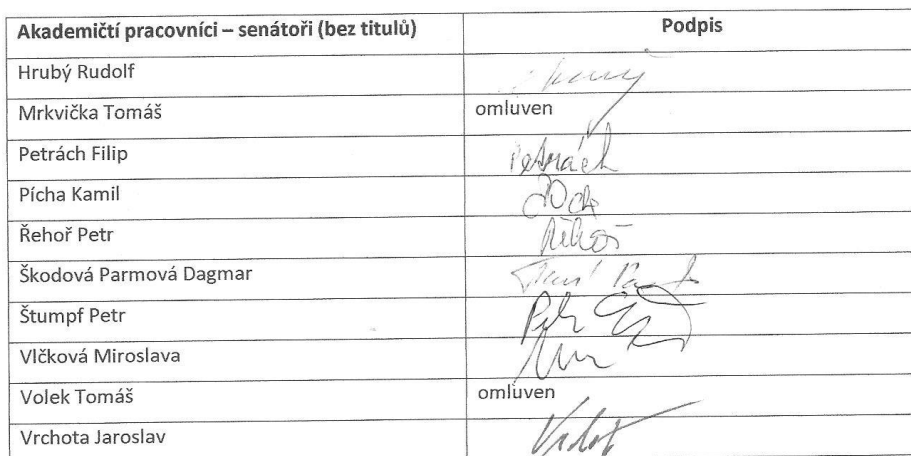 Akademičtí pracovníci – senátoři (bez titulů) Podpis
Hrubý Rudolf
Mrkvička Tomáš omluven
Petrách Filip Petrách
Pícha Kamil
Řehoř Petr Řehoř
Škodová Parmová Dagmar
Štumpf Petr Petr
Vlčková Miroslava
Volek Tomáš omluven
Vrchota Jaroslav